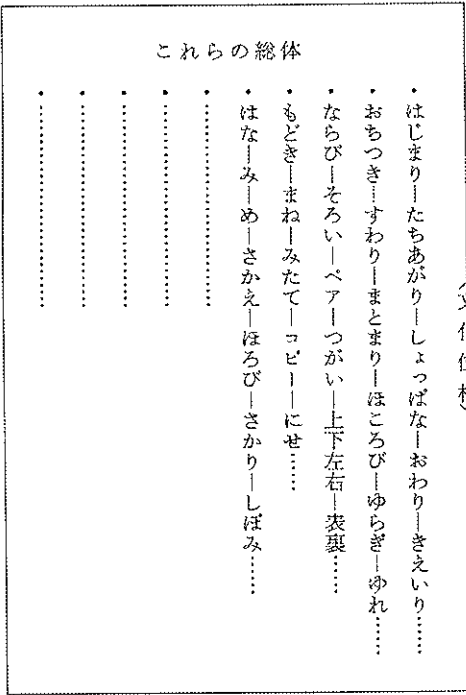 ・はじまり―たちあがり―しょっぱな―おわり―きえいり……
・おちつき―すわり―まとまり―ほころび―ゆらぎ―ゆれ……
・ならび―そろい―ペア―つがい―上下左右―表裏……
・もどき―まね―みたて―コピー―にせ……
・はな―み―め―さかえ―ほろび―さかり―しぼみ……
・……………………
・……………………
・……………………
・……………………
これらの総体